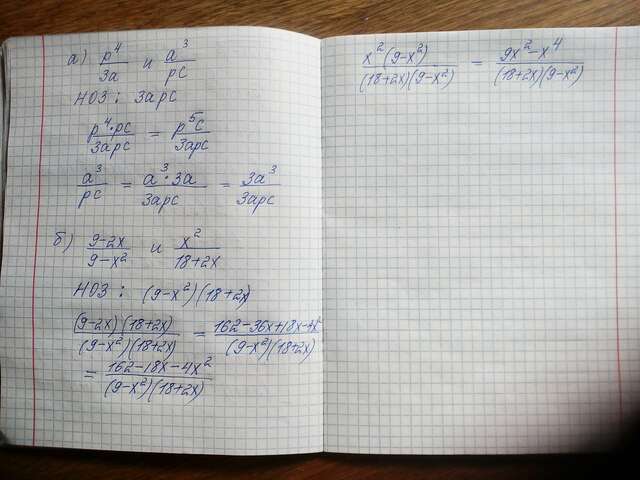 а) p⁴/3a и a³/pc
НОЗ: 3apc
p⁴·pc/3apc = p⁵c/3apc
a³/pc = a³·3a/3apc = 3a³/3apc
б) 9-2x/9-x² и x²/18+2x
НОЗ: (9-x²)(18+2x)
(9-2x)(18+2x)/(9-x²)(18+2x) = 162-36x+18x-4x²/(9-x²)(18+2x)
= 162-18x-4x²/(9-x²)(18+2x)
x²(9-x²)/(18+2x)(9-x²) = 9x²-x⁴/(18+2x)(9-x²)